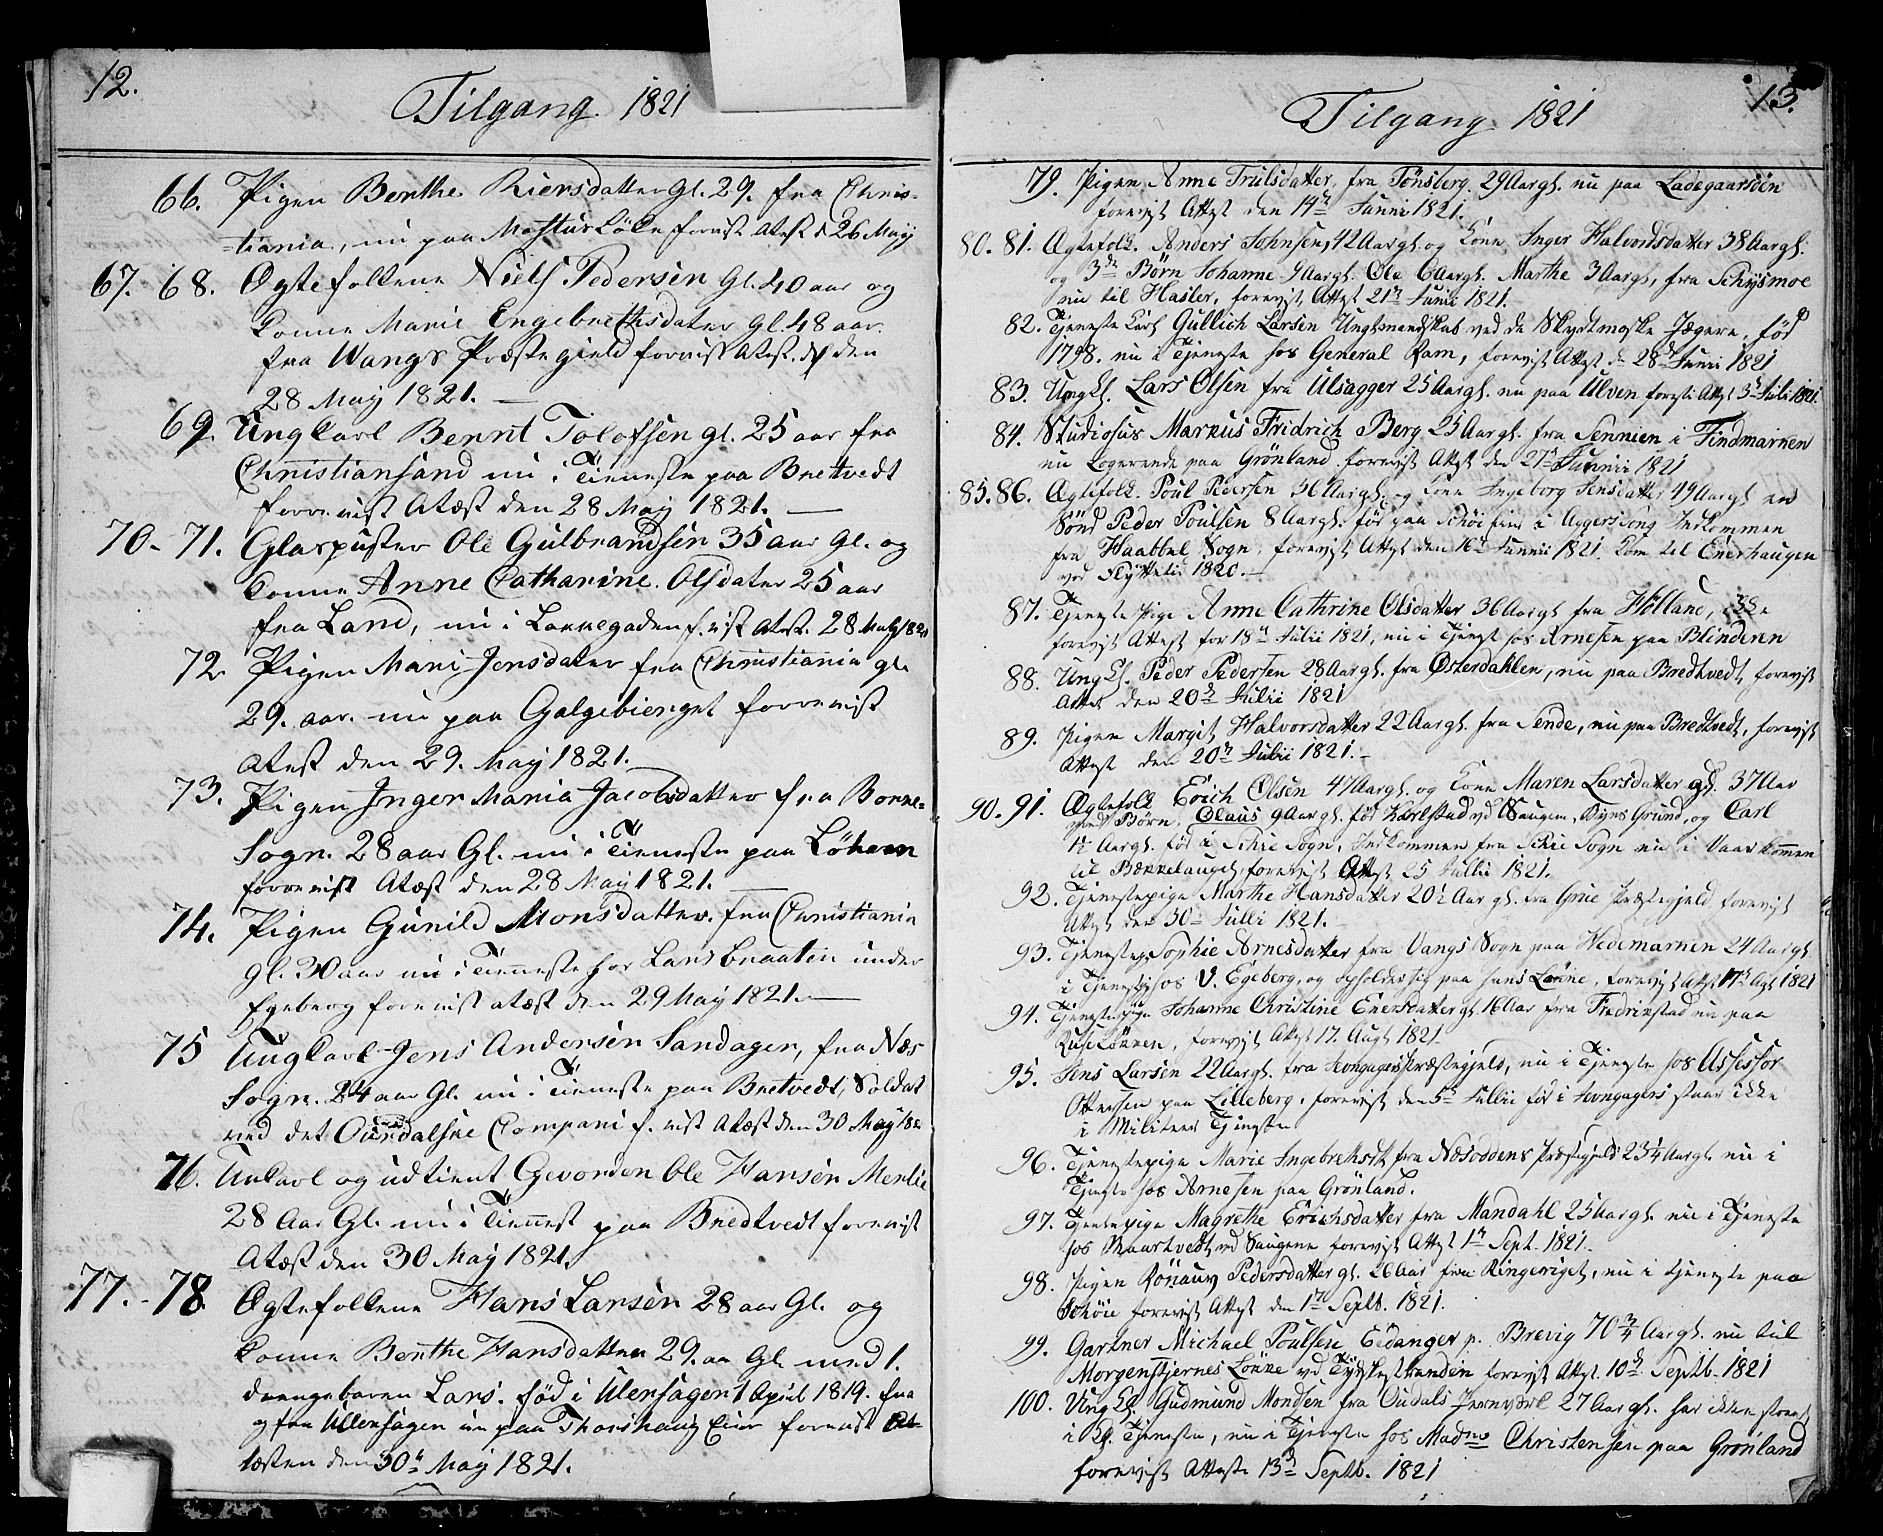 12.
Tilgang. 1821
66. Pigen Benthe Kiersdatter Gl. 29. fra Chris-
tiania, nu paa forvist Atest d 26 Maij
67. 68. Ægtefolkene Niels Pedersen Gl. 40 aar og
konne Marie Engebrethsdater Gl. 48 aar.
fra Wangs Præstegield forvist Atest. den
28 Maij 1821. —
69. Ungkarl Bernt Tolofsen gl. 25 aar fra
Christiansand nu i Tieneste paa Bretvedt
forrevist Atæst den 28 Maij 1821. —
70 - 71. Glaspuster Ole Gulbrandsen 35 aar Gl. og
konne Anne Catharine Olsdater 25 aar
fra Land, nu i Lakkegaden f. vist Atest. 28 Maij 1821
72. Pigen Mari Jensdater fra Christiania gl.
29. aar. nu paa Galgebierget forrevist
Atest den 29. Maij 1821. —
73. Pigen Inger Maria Jacobsdatter fra Borre-
Sogn. 28 aar Gl. nu i Tieneste paa Løhren
forrevist Atæst den 28 Maij 1821. —
74. Pigen Gunild Monsdatter. fra Christiania
gl. 30 aar nu i Tienneste hos Lars Braaten under
Egeberg forrevist atæst den 29 Maij 1821. —
75 Ungkarl Jens Andersen Sandager, fra Næs
Sogn. 24 aar Gl. nu i Tieneste paa Bretvedt, Soldat
ved det Ourdalske Compani f. vist Atæst den 30 Maij 182
76. Unkarl og udtient Gevorden Ole Hansen Merlie
28 Aar Gl. nu i Tiennest paa Bredtvedt forevist
Atæst den 30 Maij 1821.
77. - 78. Ægtefolkene Hans Larsen 28 aar Gl. og
konne Benthe Hansdatter 29. aa Gl. med 1.
drengebaren Lars. fød i Ulensagen 1 April 1819. fra
og fra Ullensagen nu paa Thorshaug Eier forevist At-
testen den 30t Maij 1821.
13.
Tilgang 1821
79. Pigen Anne Trulsdatter, fra Tönsberg. 29 Aargl. nu paa Ladegaarsöen
forevist Attest den 14de Junni 1821.
80. 81. Ægtefolk. Anders Johnsen, 42 Aargl. og kone Inger Halvorsdatter 38 Aargl.
og 3de Børn Johanne 9 Aargl. Ole 6 Aargl. Marthe 3 Aargl, fra Schysmoe
nu til Hasler, forevist Attest 21de Junii 1821.
82. Tjeneste karl Gullich Larsen Ungtmandskab ved de Skydtmoske Jægere, fød
1798. nu i Tjeneste hos General Ram, forevist Attest d 28de Junii 1821
83. Ungkl. Lars Olsen fra Ulsagger 25 Aargl. nu paa Ulven forevi Attest 3de Juli 1821.
84. Studiosus Markus Fridrich Berg 25 Aargl. fra Sennien i Findmarken
nu Logerende paa Grönland forevist Attest den 21de Junnii 1821
85. 86. Ægtefolk. Poul Pedersen 36 Aargl. og kone Ingeborg Jensdatter 49 Aargl en
Sönd Peder Poulsen 8 Aargl. föd paa i Aggersong Indkommen
fra Haabbel Sogn, forevist Attest den 16de Junnii 1821. kom til Enerhaugen
ved Flyttetid 1820. —
87. Tjeneste Pige Anne Cathrine Olsdatter 36 Aargl fra Hölland, ikke
forevist Attest for 18de Julii 1821, nu i Tjenest hos Arnesen paa Blinderen
88. Ungkl. Peder Pedersen 28 Aargl. fra Österdahlen, nu paa Bredtvedt, forevist
Attest den 20de Julii 1821
89. Pigen Margit Halvorsdatter 22 Aargl. fra Sende, nu paa Bredtvedt, forevist
Attest den 20de Julii 1821. —
90. 91. Ægtefolk Erich Olsen 47 Aargl. og kone Maren Larsdatter gl. 37 Aar
med Børn. Claus 9 Aargl. föd Karlstad vd Saugene, Grund, og Carl
1½ Aargl. föd i Schie Sogn, Indkommen fra Schie Sogn nu i Vaar kommen
til Bækkelauget, forevist Attest 25 Jullii 1821.
92. Tjenestepige Marthe Hansdatter 20½ Aar gl. fra Grue Præstegjeld forevist
Attest den 30de Julli 1821. —
93. Tjenestepg Sophie Arnesdatter fra Vangs Sogn paa Hedemarken 24 Aargl
i Tjenest hos V. Egeberg, og opholder sig paa hans Lökke, forevist Attest 17de Agt 1821
94. Tjenestepige Johanne Christine Enersdatter gl 16 Aar fra Fredrikstad nu paa
Ruselökken, forevist Attest 17. Augt 1821.
95. Jens Larsen 22 Aargl. fra Præstegjeld, nu i Tjeneste hos Assessor
Ottersen paa Lilleberg, forevist den 5de Jullii föd i staar ikke
i Militær Tjeneste
96. Tjenestepige Marie Ingebrektsdt fra Næsoddens Præstegjeld 23¼ Aargl. nu i
Tjeneste hos Arnesen paa Grönland.
97. Tjenestepige Magrethe Erichsdatter fra Mandahl 25 Aargl. nu i Tjeneste
hos ved Saugene forevist Attest 1de Sept. 1821.
98. Pigen Rönauw Pedersdatter gl. 26 Aar fra Ringeriget, nu i tjeneste paa
Schöie forevist Attest den 1de Septb. 1821.
99. Gartner Michael Poulsen Eidanger p. Brevig 70¾ Aargl. nu til
Morgenstjernes Lökke vd Tydskestranden forevist Attest. 10de Septb. 1821
100. Ungkl. Gudmund Mondsen fra Oudals Jernværk 27 Aargl. har ikke staaet
i Kl. Tjeneste, nu i Tjeneste hos Madme Christensen paa Grönland
forevist Atteste 13de Septb. 1821